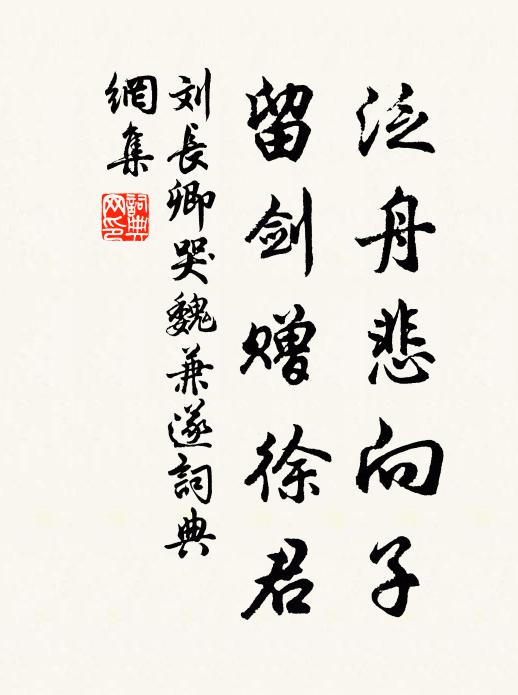 泛舟悲向子
留剑赠徐君
刘長卿哭魏兼遂詞典
網集
詞典
网印